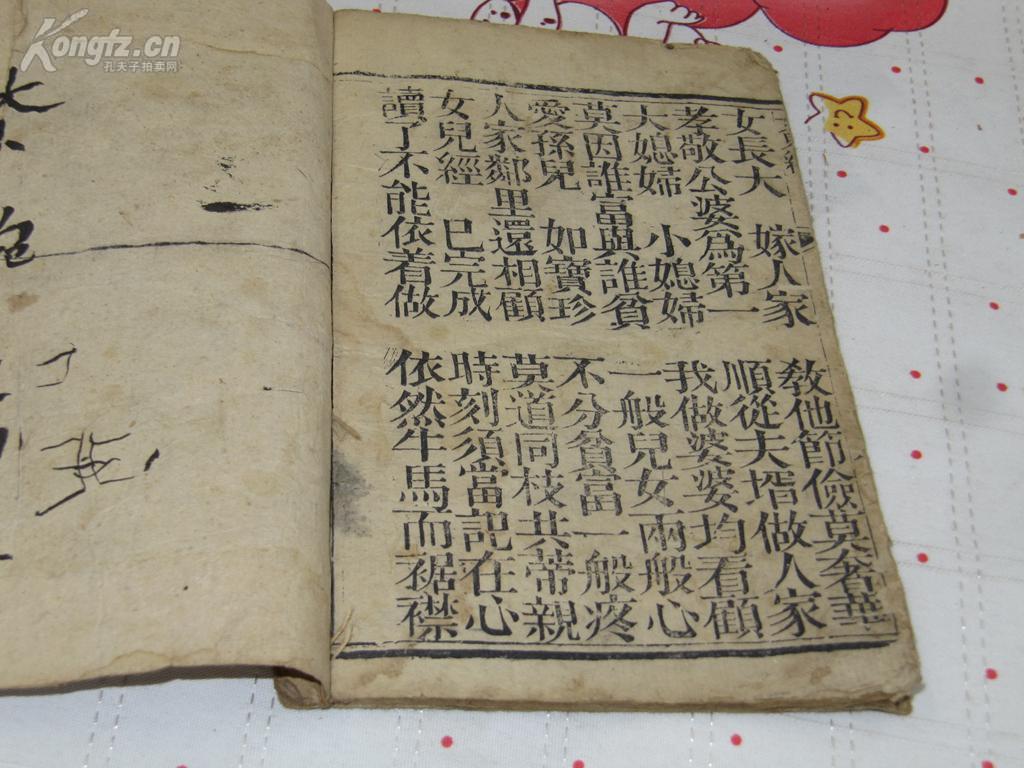 Kongtz.cn
孔夫子拍卖网
女長大 嫁人家 教他節儉莫奢華
老敬公婆為第一 順從夫壻做人家
大媳婦 小媳婦 我做婆婆均看顧
莫因誰富與誰貧 一般兒女兩般心
愛孫兒 如寶珍 不分貧富一般疼
人家鄰里還相顧 莫道同枝共蒂親
女兒經 已完成 時刻須當記在心
讀了不能依着做 依然牛馬而裾襟